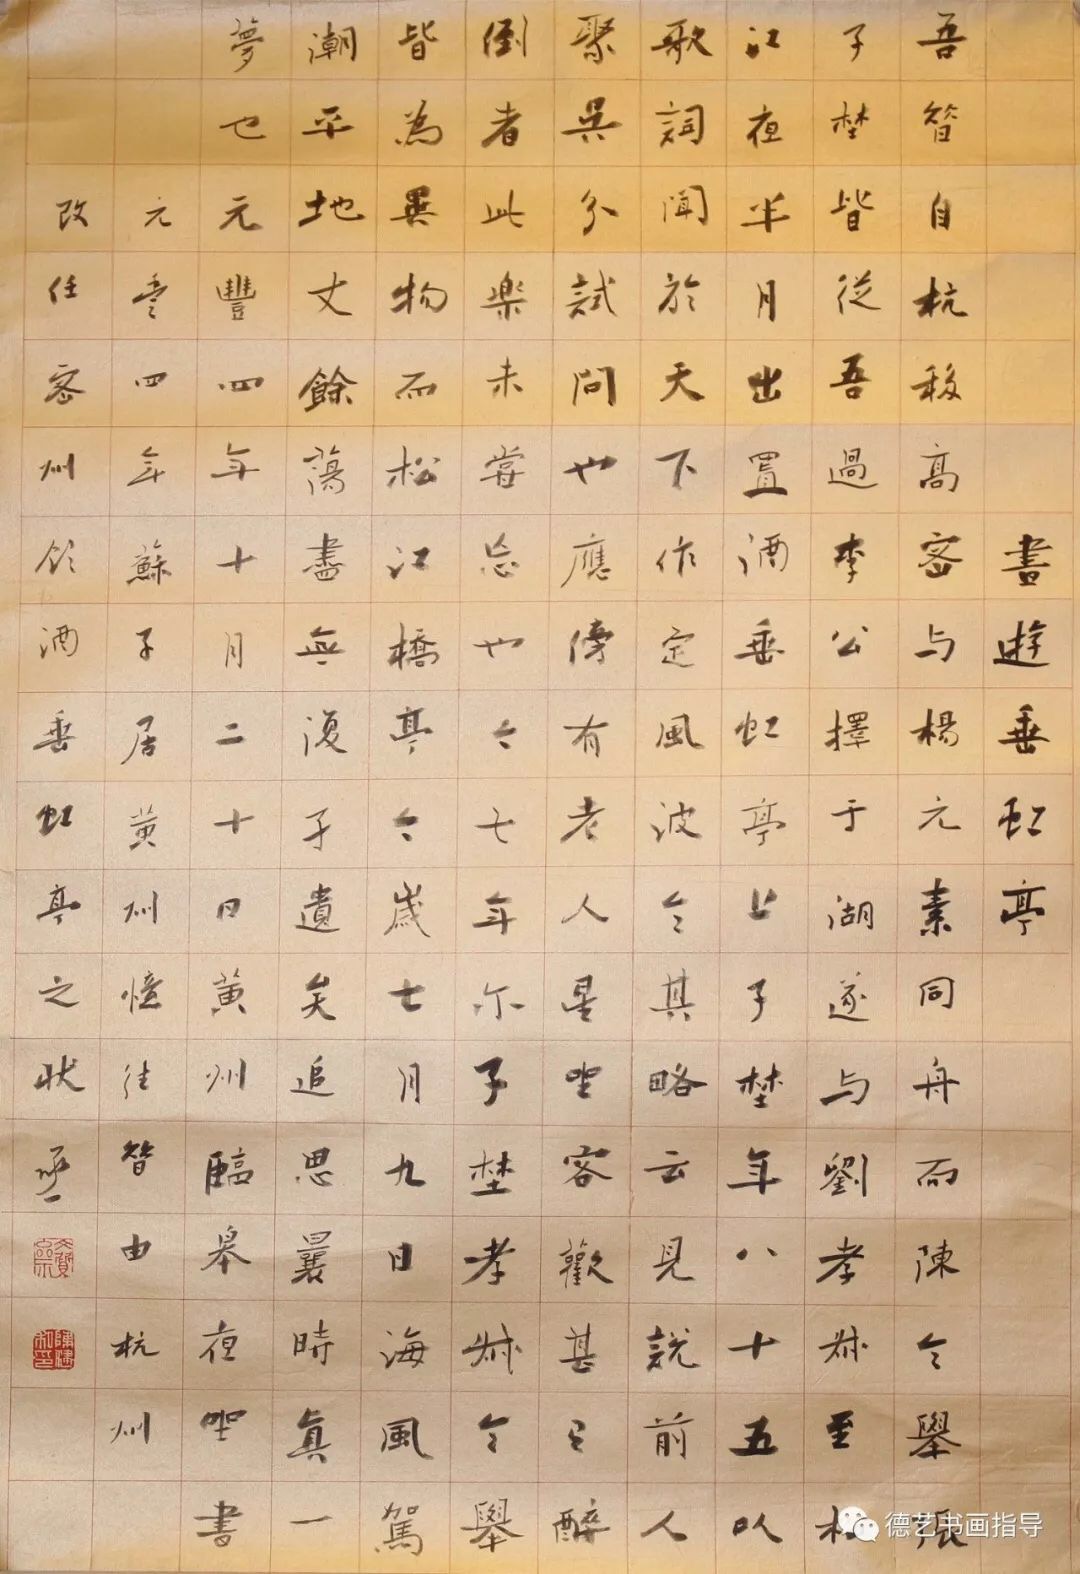 書遊垂虹亭
吾昔自杭移高密与楊元素同舟而陳令舉張
子埜皆從吾過李公擇于湖遂与劉孝叔至松
江夜半月出置酒垂虹亭上子埜年八十五以
歌詞聞於天下作定風波令其略云見説前人
聚吳分試問也應傍有老人星坐客歡甚有醉
倒者此樂未嘗忘也今七年尔子埜孝叔令舉
皆為異物而松江橋亭今歲七月九日海風駕
潮平地丈餘蕩盡無復孑遺矣追思曩時真一
夢也元豐四年十月二十日黄州臨皋夜坐書
元豐四年蘇子居黄州憶往昔由杭州
改任密州飲酒垂虹亭之狀
德艺书画指导